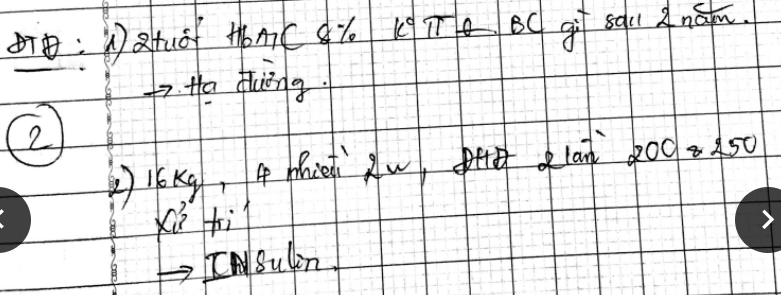 ĐTĐ : 1) 2 tuổi HbA1C 8% K° TT BC gì sau 2 năm.
→ Hạ đường.
2
2) 16 Kg, 4 nhiều 2w, ĐHĐ 2 lần 200 & 250
Xử trí
→ INSulin.